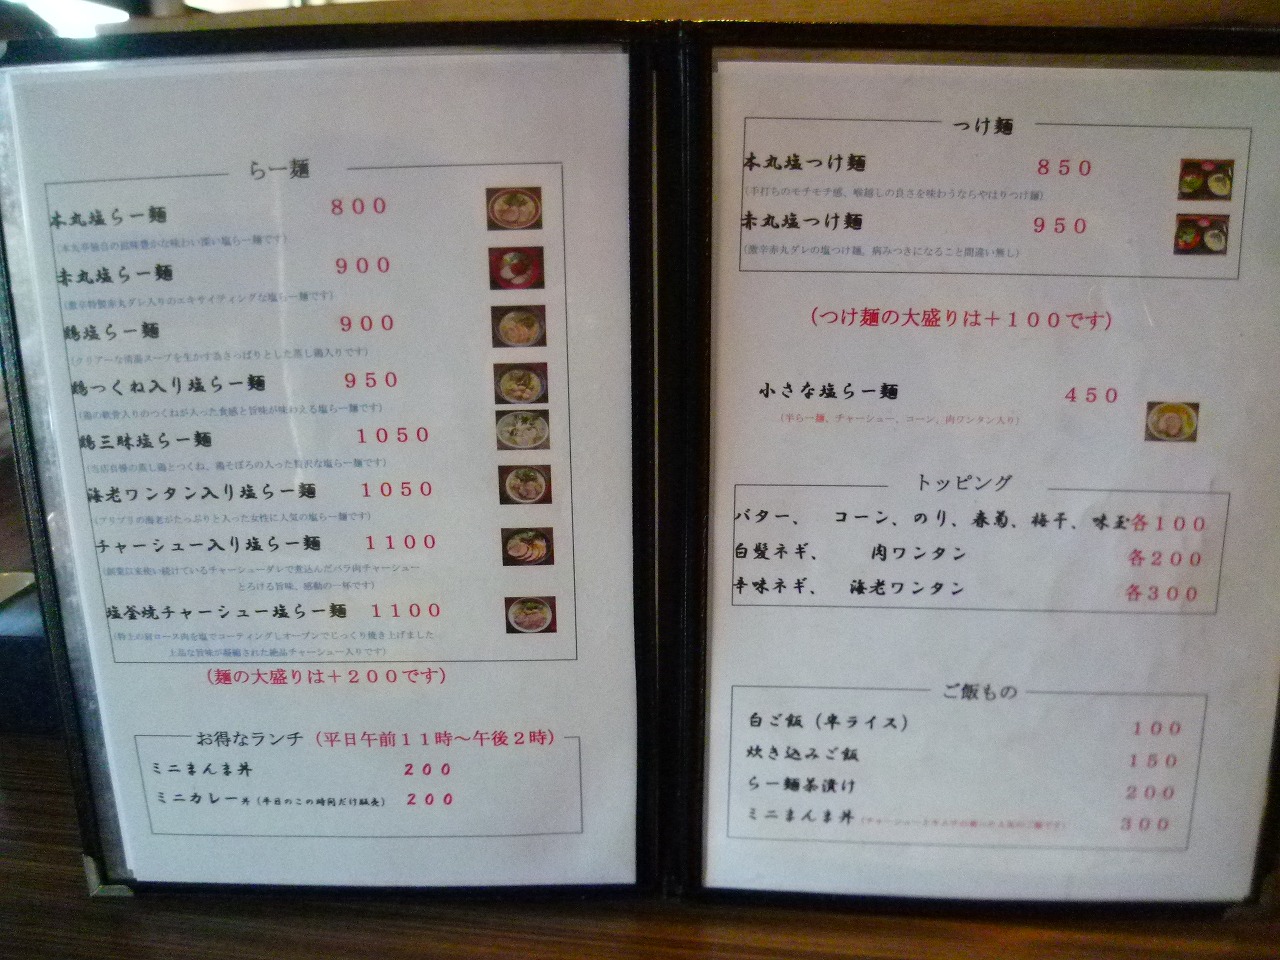 らー麺
本丸塩らー麺 800
(本丸亭独自の滋味豊かな味わい深い塩らー麺です)
赤丸塩らー麺 900
(激辛特製赤丸ダレ入りのエキサイティングな塩らー麺です)
鶏塩らー麺 900
(クリアーな清湯スープを生かす為さっぱりとした蒸し鶏入りです)
鶏つくね入り塩らー麺 950
(鶏の軟骨入りのつくねが入った食感と旨味が味わえる塩らー麺です)
鶏三昧塩らー麺 1050
(当店自慢の蒸し鶏とつくね、鶏そぼろの入った贅沢な塩らー麺です)
海老ワンタン入り塩らー麺 1050
(プリプリの海老がたっぷりと入った女性に人気の塩らー麺です)
チャーシュー入り塩らー麺 1100
(創業以来使い続けているチャーシューダレで煮込んだバラ肉チャーシュー
とろける旨味、感動の一杯です)
塩釜焼チャーシュー塩らー麺 1100
(特上の肩ロース肉を塩でコーティングしオーブンでじっくり焼き上げました
上品な旨味が凝縮された絶品チャーシュー入りです)
(麺の大盛りは+200です)
お得なランチ(平日午前11時~午後2時)
ミニまんま丼 200
ミニカレー丼(平日のこの時間だけ販売) 200
つけ麺
本丸塩つけ麺 850
(手打ちのモチモチ感、喉越しの良さを味わうならやはりつけ麺)
赤丸塩つけ麺 950
(激辛赤丸ダレの塩つけ麺。病みつきになること間違い無し)
(つけ麺の大盛りは+100です)
小さな塩らー麺 450
(半らー麺、チャーシュー、コーン、肉ワンタン入り)
トッピング
バター、 コーン、のり、春菊、梅干、味玉各100
白髪ネギ、 肉ワンタン 各200
辛味ネギ、 海老ワンタン 各300
ご飯もの
白ご飯(半ライス) 100
炊き込みご飯 150
らー麺茶漬け 200
ミニまんま丼 300